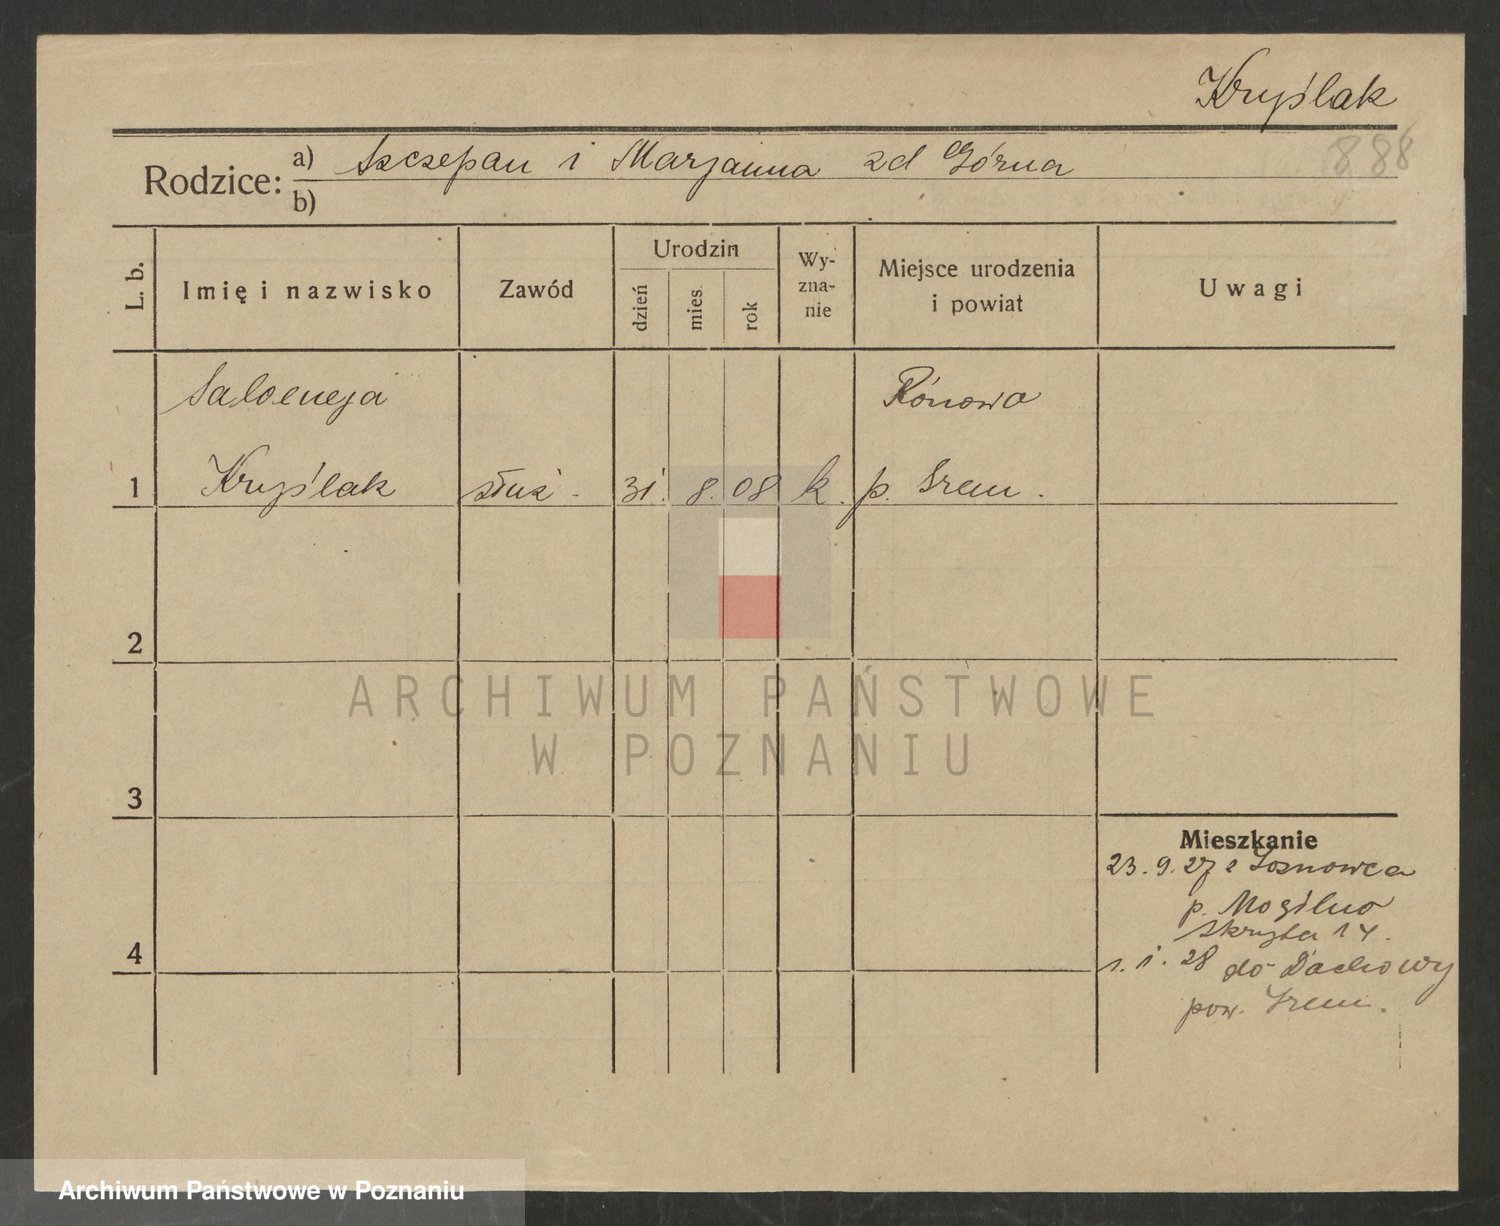 Kryślak
888
Rodzice: a) Szczepan i Marjanna zd Górna
b)
L. b.
Imię i nazwisko
Zawód
Urodzin
dzień
mies.
rok
Wy-
zna-
nie
Miejsce urodzenia
i powiat
Uwagi
Salomeja
Rónowo
1 Kryślak służ. 31. 8. 08 k. p. Śrem.
2
3
4
Mieszkanie
23. 9. 27 z Sosnowca
p. Mogilno
Skryta 14.
1. 1. 28 do Dachowy
pow. Śrem.
ARCHIWUM PAŃSTWOWE
W POZNANIU
Archiwum Państwowe w Poznaniu